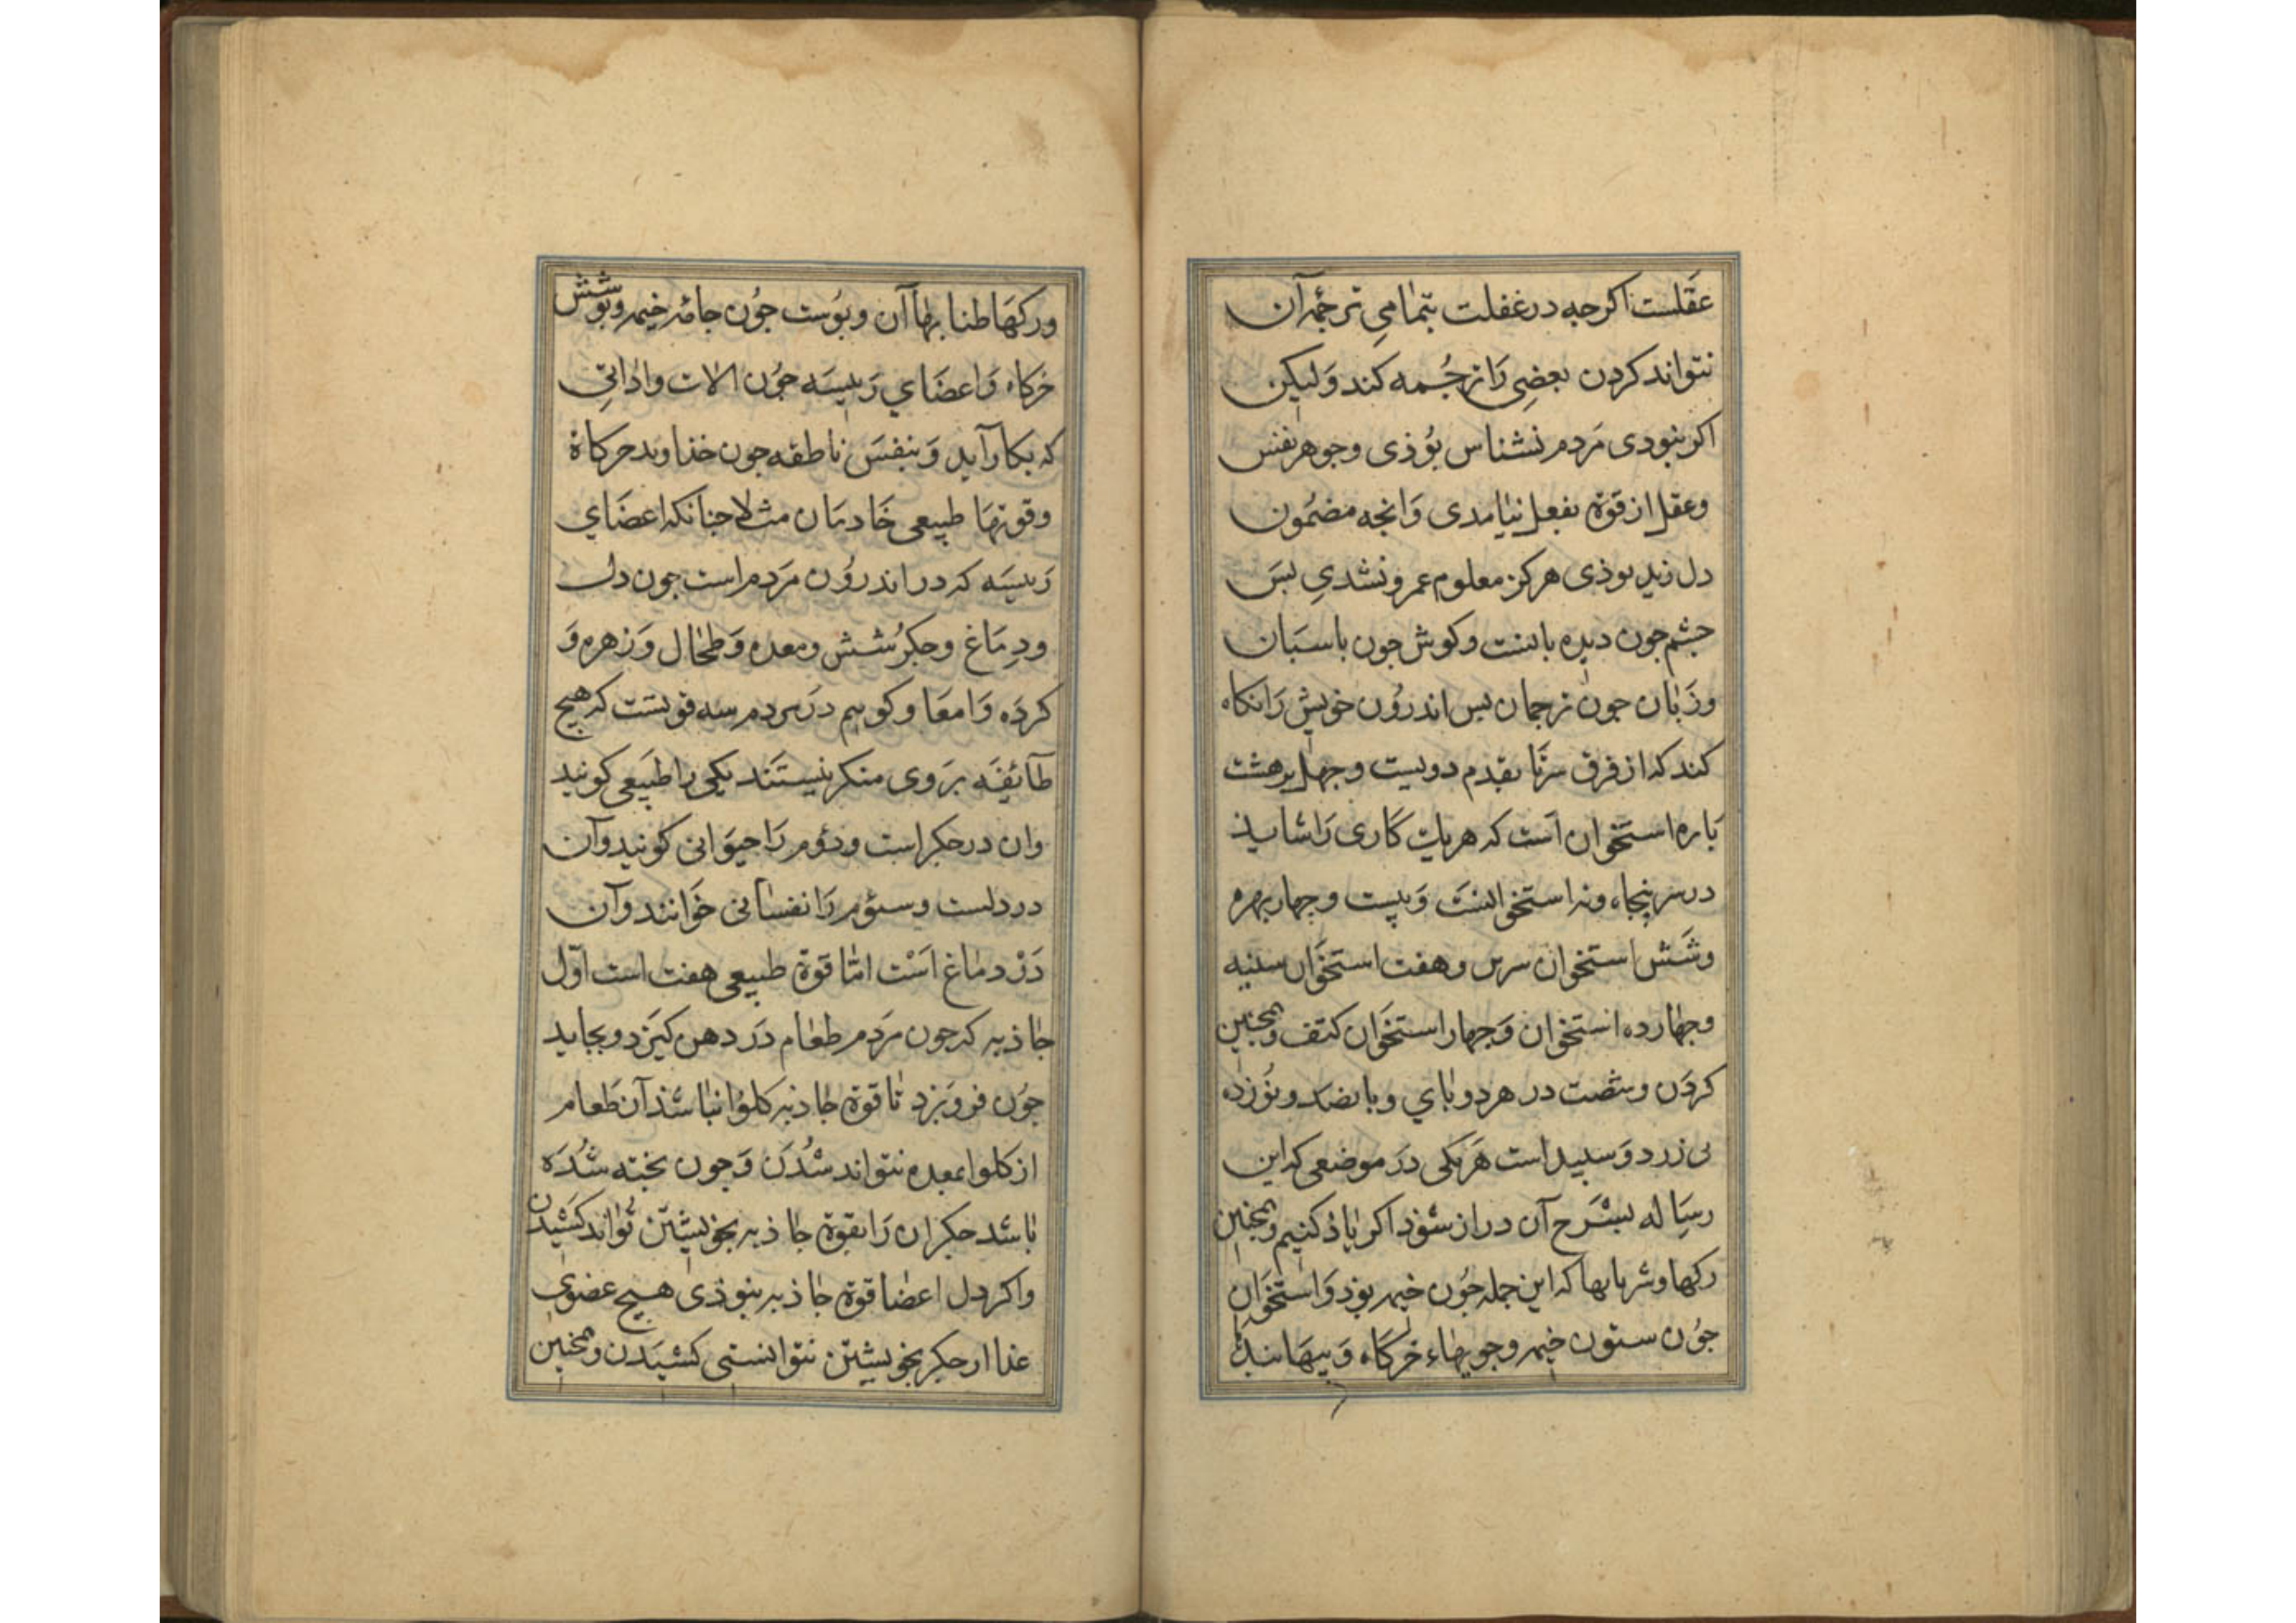 عقلست اکرجه درغفلت بتمامی ترجمه آن
نتواند کردن بعضی را ترجمه کند ولیکن
اکر نبودی مردم نشناس بوذی وجوهر نفس
وعقل از قوة بفعل نیامدی وانجه مضمون
دل زید بوذی هرکز معلوم عمرو نشدی بس
جشم جون دیده بانست وکوش جون باسبان
وزبان جون ترجمان بس اندرون خویش را نکاه
کند که از فرق سر تا بقدم دویست وجهل وهشت
باره استخوان است که هریک کاری را شاید
در سر بنجاه ونه استخوانست وبیست وجهار مهره
وشش استخوان سرین وهفت استخوان سینه
وجهارده استخوان وجهار استخوان کتف وهمجنین
کردن وشصت در هردو بای وبانصد ونوزده
بی زرد وسبید است هریکی در موضعی که این
رساله بشرح آن دراز شوذ اکر یاذ کنیم وهمجنین
رکها وشریانها که این جمله جون خیمه بوذ واستخوان
جون ستون خیمه وجوبهاء خرکاه وبیها بندها
ورکها طنابها آن وبوست جون جامه خیمه وبوشش
خرکاه واعضای رییسه جون الات واداتی
که بکار آید ونفس ناطقه جون خذاوند خرکاة
وقوتها طبیعی خادمان مثلا جنانکه اعضای
رییسه که در اندرون مردم است جون دل
ودماغ وجکر شش ومعده وطحال وزهره و
کرده وامعا وکوییم در مردم سه قویست که هیج
طآیفه بروی منکر نیستند یکی را طبیعی کویند
وان در جکر است ودوم را حیوانی کویند وآن
در دلست وسوم را نفسانی خوانند وآن
در دماغ است اما قوة طبیعی هفت است اول
جاذبه که جون مردم طعام در دهن کیرد وبجاید
جون فروبرد تا قوة جاذبه کلو نباشذ آن طعام
از کلو بمعده نتواند شدن وجون بخته شده
باشد جکر ان را بقوة جاذبه بخویشتن تواند کشیدن
واکر دل اعضا قوة جاذبه نبوذی هیج عضوی
غذا از جکر بخویشتن نتوانستی کشیدن وهمجنین